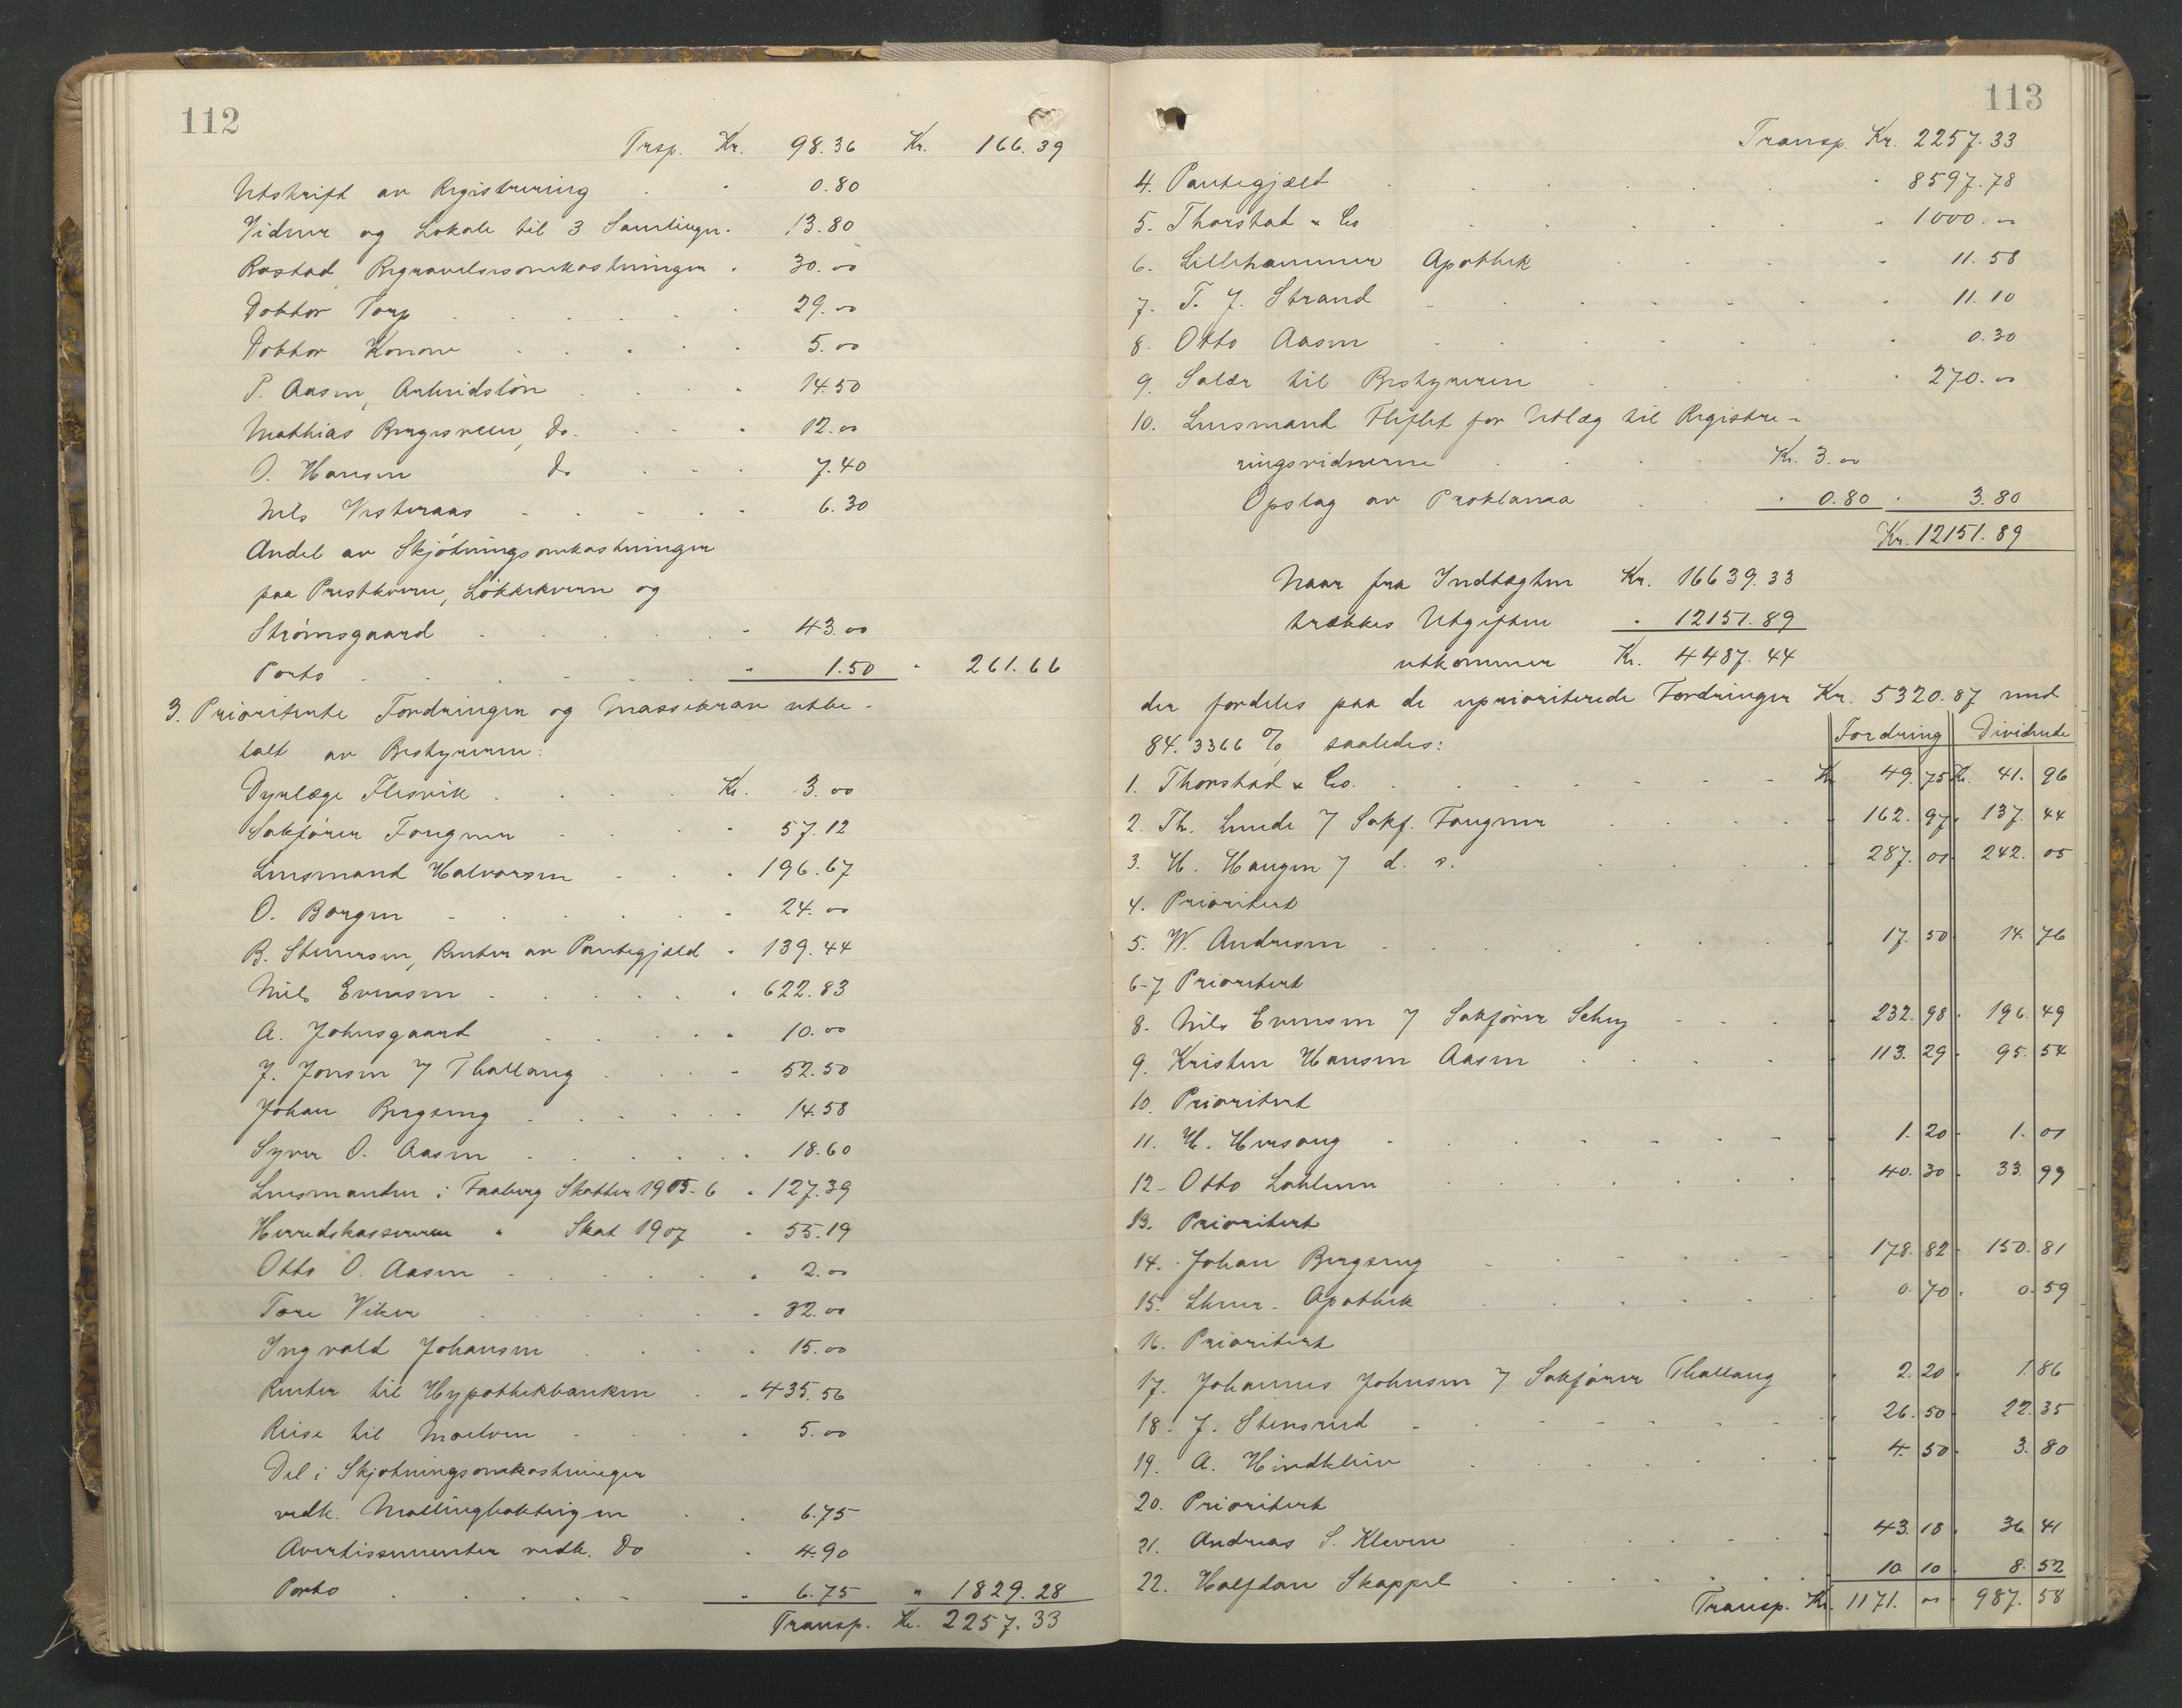 112
Trsp. Kr. 98.36 Kr. 166.39
Utskrift av Registrering . . 0.80
Vidner og Lokale til 3 Samlinger . 13.80
Rostad, Begravelsesomkostninger . 30.00
Doktor Torp . . . . . 29.00
Doktor Konow . . . . 5.00
P. Aasen, Arbeidsløn . . . 14.50
Mathias Bergesveen, Do. . . . 12.00
O. Hansen Do . . . 7.40
Nils Vesteraas . . . . . 6.30
Andel av Skjøtningsomkostninger
paa Prestkvern, Løkkekvern og
Strømsgaard . . . . . 43.00
Porto . . . . . . 1.50 " 261.66
3. Prioriterte Fordringer og Massekrav utbe-
talt av Bestyreren:
Dyrlæge Flesvik . . . . Kr. 3.00
Sakfører Fougner . . . . 57.12
Lensmand Halvorsen . . . 196.67
O. Borgen . . . . . . 24.00
B. Stenersen, Renter av Pantegjæld . 139.44
Nils Evensen . . . . . 622.83
A. Johnsgaard . . . . 10.00
J. Jensen 7 Thallaug . . . 52.50
Johan Bergseng . . . . . 14.58
Syver O. Aasen . . . . . 18.60
Lensmanden i Faaberg Skatter 1905-6 . 127.39
Herredskassereren " Skat 1907 . 55.19
Otto O. Aasen . . . . . 2.00
Tore Viken . . . . . 32.00
Ingvald Johansen . . . . 15.00
Renter til Hypothekbanken . . 435.56
Reise til Moelven . . . . 5.00
Del i Skjøtningsomkostninger
vedk. Mallingbakkeigen . . 6.75
Avertissementer vedk. Do . 4.90
Porto . . . . . . 6.75 " 1829.28
Transp. Kr. 2257.33
113
Transp. Kr. 2257.33
4. Pantegjæld . . . . . . 8597.78
5. Thorstad & Co . . . . . . 1000.00
6. Lillehammer Apothek . . . . 11.58
7. T. J. Strand . . . . . . 11.10
8. Otto Aasen . . . . . . 0.30
9. Salær til Bestyreren . . . . 270.00
10. Lensmand Fliflet for Utlæg til Registre-
ringsvidnerne . . . . Kr. 3.00
Opslag av Proklama . . 0.80 . 3.80
Kr. 12151.89
Naar fra Indtægten Kr. 16639.33
trækkes Utgiften . 12151.89
utkommer Kr. 4487.44
der fordeles paa de uprioriterede Fordringer Kr. 5320.87 med
84.3366 % saaledes:
Fordring Dividende
1. Thorstad & Co. . . . . . Kr. 49.75 Kr. 41.96
2. Th. Lunde 7 Sakf. Fougner . . . 162.97 . 137.44
3. H. Haugen 7 d. s. . . . . 287.01 . 242.05
4. Prioritert
5. W. Andresen . . . . . . 17.50 . 14.76
6-7 Prioritert
8. Nils Evensen 7 Sakfører Schey . . . 232.98 . 196.49
9. Kristen Hansen Aasen . . . . 113.29 . 95.54
10. Prioritert
11. H. Hersoug . . . . . . 1.20 . 1.01
12. Otto Lahlum . . . . . . 40.30 . 33.99
13. Prioritert
14. Johan Bergseng . . . . . 178.82 . 150.81
15. Lhmr. Apothek . . . . . 0.70 . 0.59
16. Prioritert
17. Johannes Johnsen 7 Sakfører Thallaug . 2.20 . 1.86
18. J. Stensrud . . . . . . 26.50 . 22.35
19. A. Hindklev . . . . . . 4.50 . 3.80
20. Prioritert
21. Andreas S. Kleven . . . . . 43.18 . 36.41
22. Halfdan Skappel . . . . . 10.10 . 8.52
Transp. Kr. 1171.00 . 987.58